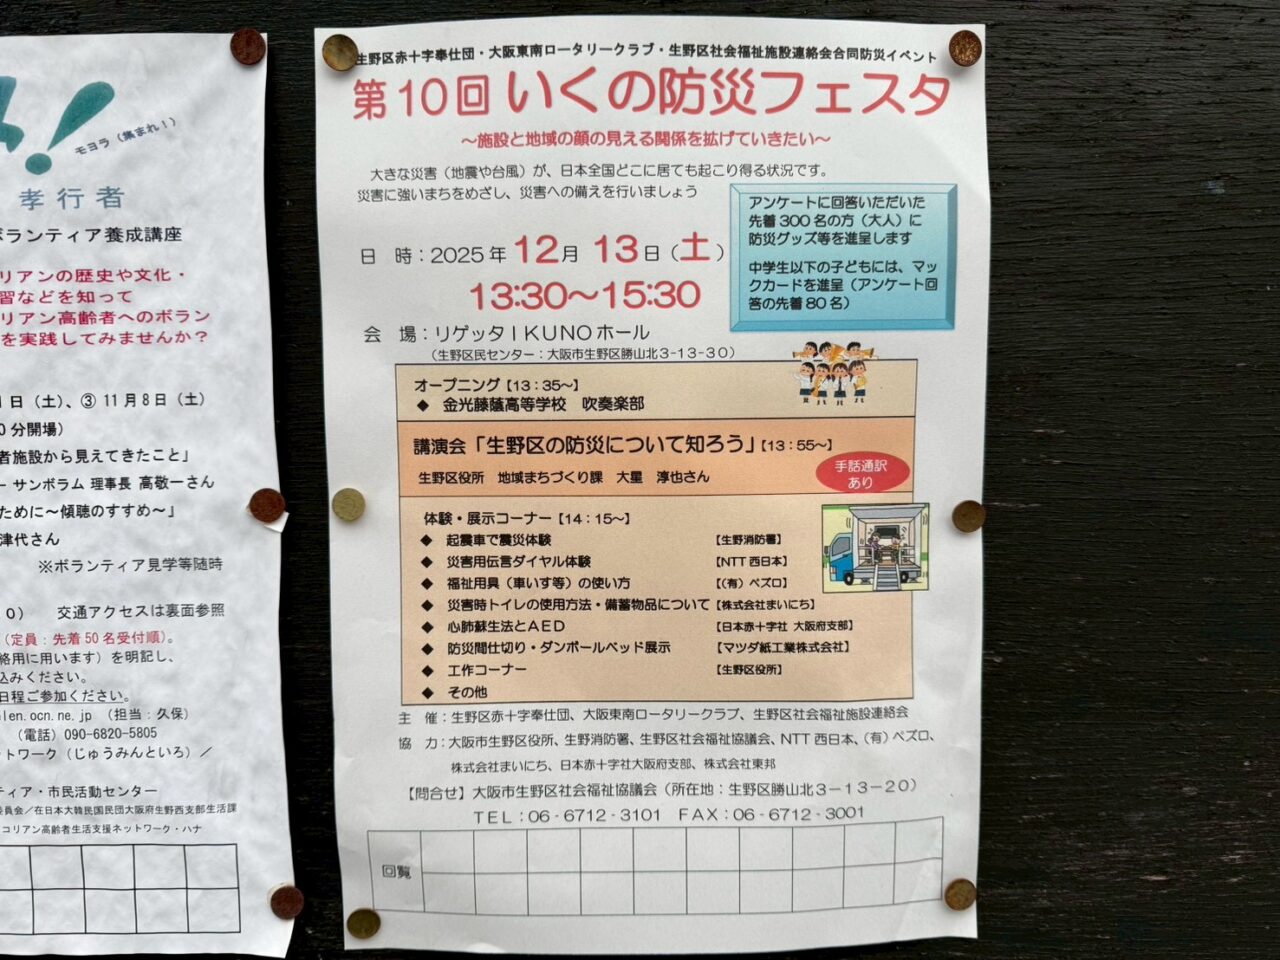 み!
モヨラ（集まれ！）
孝行者
ボランティア養成講座
リアンの歴史や文化・
習などを知って
リアン高齢者へのボラン
を実践してみませんか？
1日（土）、③ 11月8日（土）
0分開場）
者施設から見えてきたこと」
ー サンボラム 理事長 高敬一さん
ために～傾聴のすすめ～」
津代さん
※ボランティア見学等随時
0） 交通アクセスは裏面参照
（定員：先着50名受付順）。
絡用に用います）を明記し、
込みください。
日程ご参加ください。
len.ocn.ne.jp （担当：久保）
（電話）090-6820-5805
トワーク（じゅうみんといろ）／
ティア・市民活動センター
委員会／在日本大韓民国民団大阪府生野西支部生活課
コリアン高齢者生活支援ネットワーク・ハナ
生野区赤十字奉仕団・大阪東南ロータリークラブ・生野区社会福祉施設連絡会合同防災イベント
第10回 いくの防災フェスタ
～施設と地域の顔の見える関係を拡げていきたい～
大きな災害（地震や台風）が、日本全国どこに居ても起こり得る状況です。
災害に強いまちをめざし、災害への備えを行いましょう
アンケートに回答いただいた
先着300名の方（大人）に
防災グッズ等を進呈します
中学生以下の子どもには、マッ
クカードを進呈（アンケート回
答の先着80名）
日 時：2025年 12月 13日（土）
13:30～15:30
会 場：リゲッタIKUNOホール
（生野区民センター：大阪市生野区勝山北3-13-30）
オープニング【13：35～】
◆ 金光藤蔭高等学校 吹奏楽部
講演会「生野区の防災について知ろう」【13：55～】
生野区役所 地域まちづくり課 大星 淳也さん
手話通訳
あり
体験・展示コーナー【14：15～】
◆ 起震車で震災体験 【生野消防署】
◆ 災害用伝言ダイヤル体験 【NTT西日本】
◆ 福祉用具（車いす等）の使い方 【（有）ベズロ】
◆ 災害時トイレの使用方法・備蓄物品について【株式会社まいにち】
◆ 心肺蘇生法とAED 【日本赤十字社 大阪府支部】
◆ 防災間仕切り・ダンボールベッド展示 【マツダ紙工業株式会社】
◆ 工作コーナー 【生野区役所】
◆ その他
主 催：生野区赤十字奉仕団、大阪東南ロータリークラブ、生野区社会福祉施設連絡会
協 力：大阪市生野区役所、生野消防署、生野区社会福祉協議会、NTT西日本、（有）ベズロ、
株式会社まいにち、日本赤十字社大阪府支部、株式会社東邦
【問合せ】大阪市生野区社会福祉協議会（所在地：生野区勝山北3－13－20）
TEL：06-6712-3101 FAX：06-6712-3001
回覧